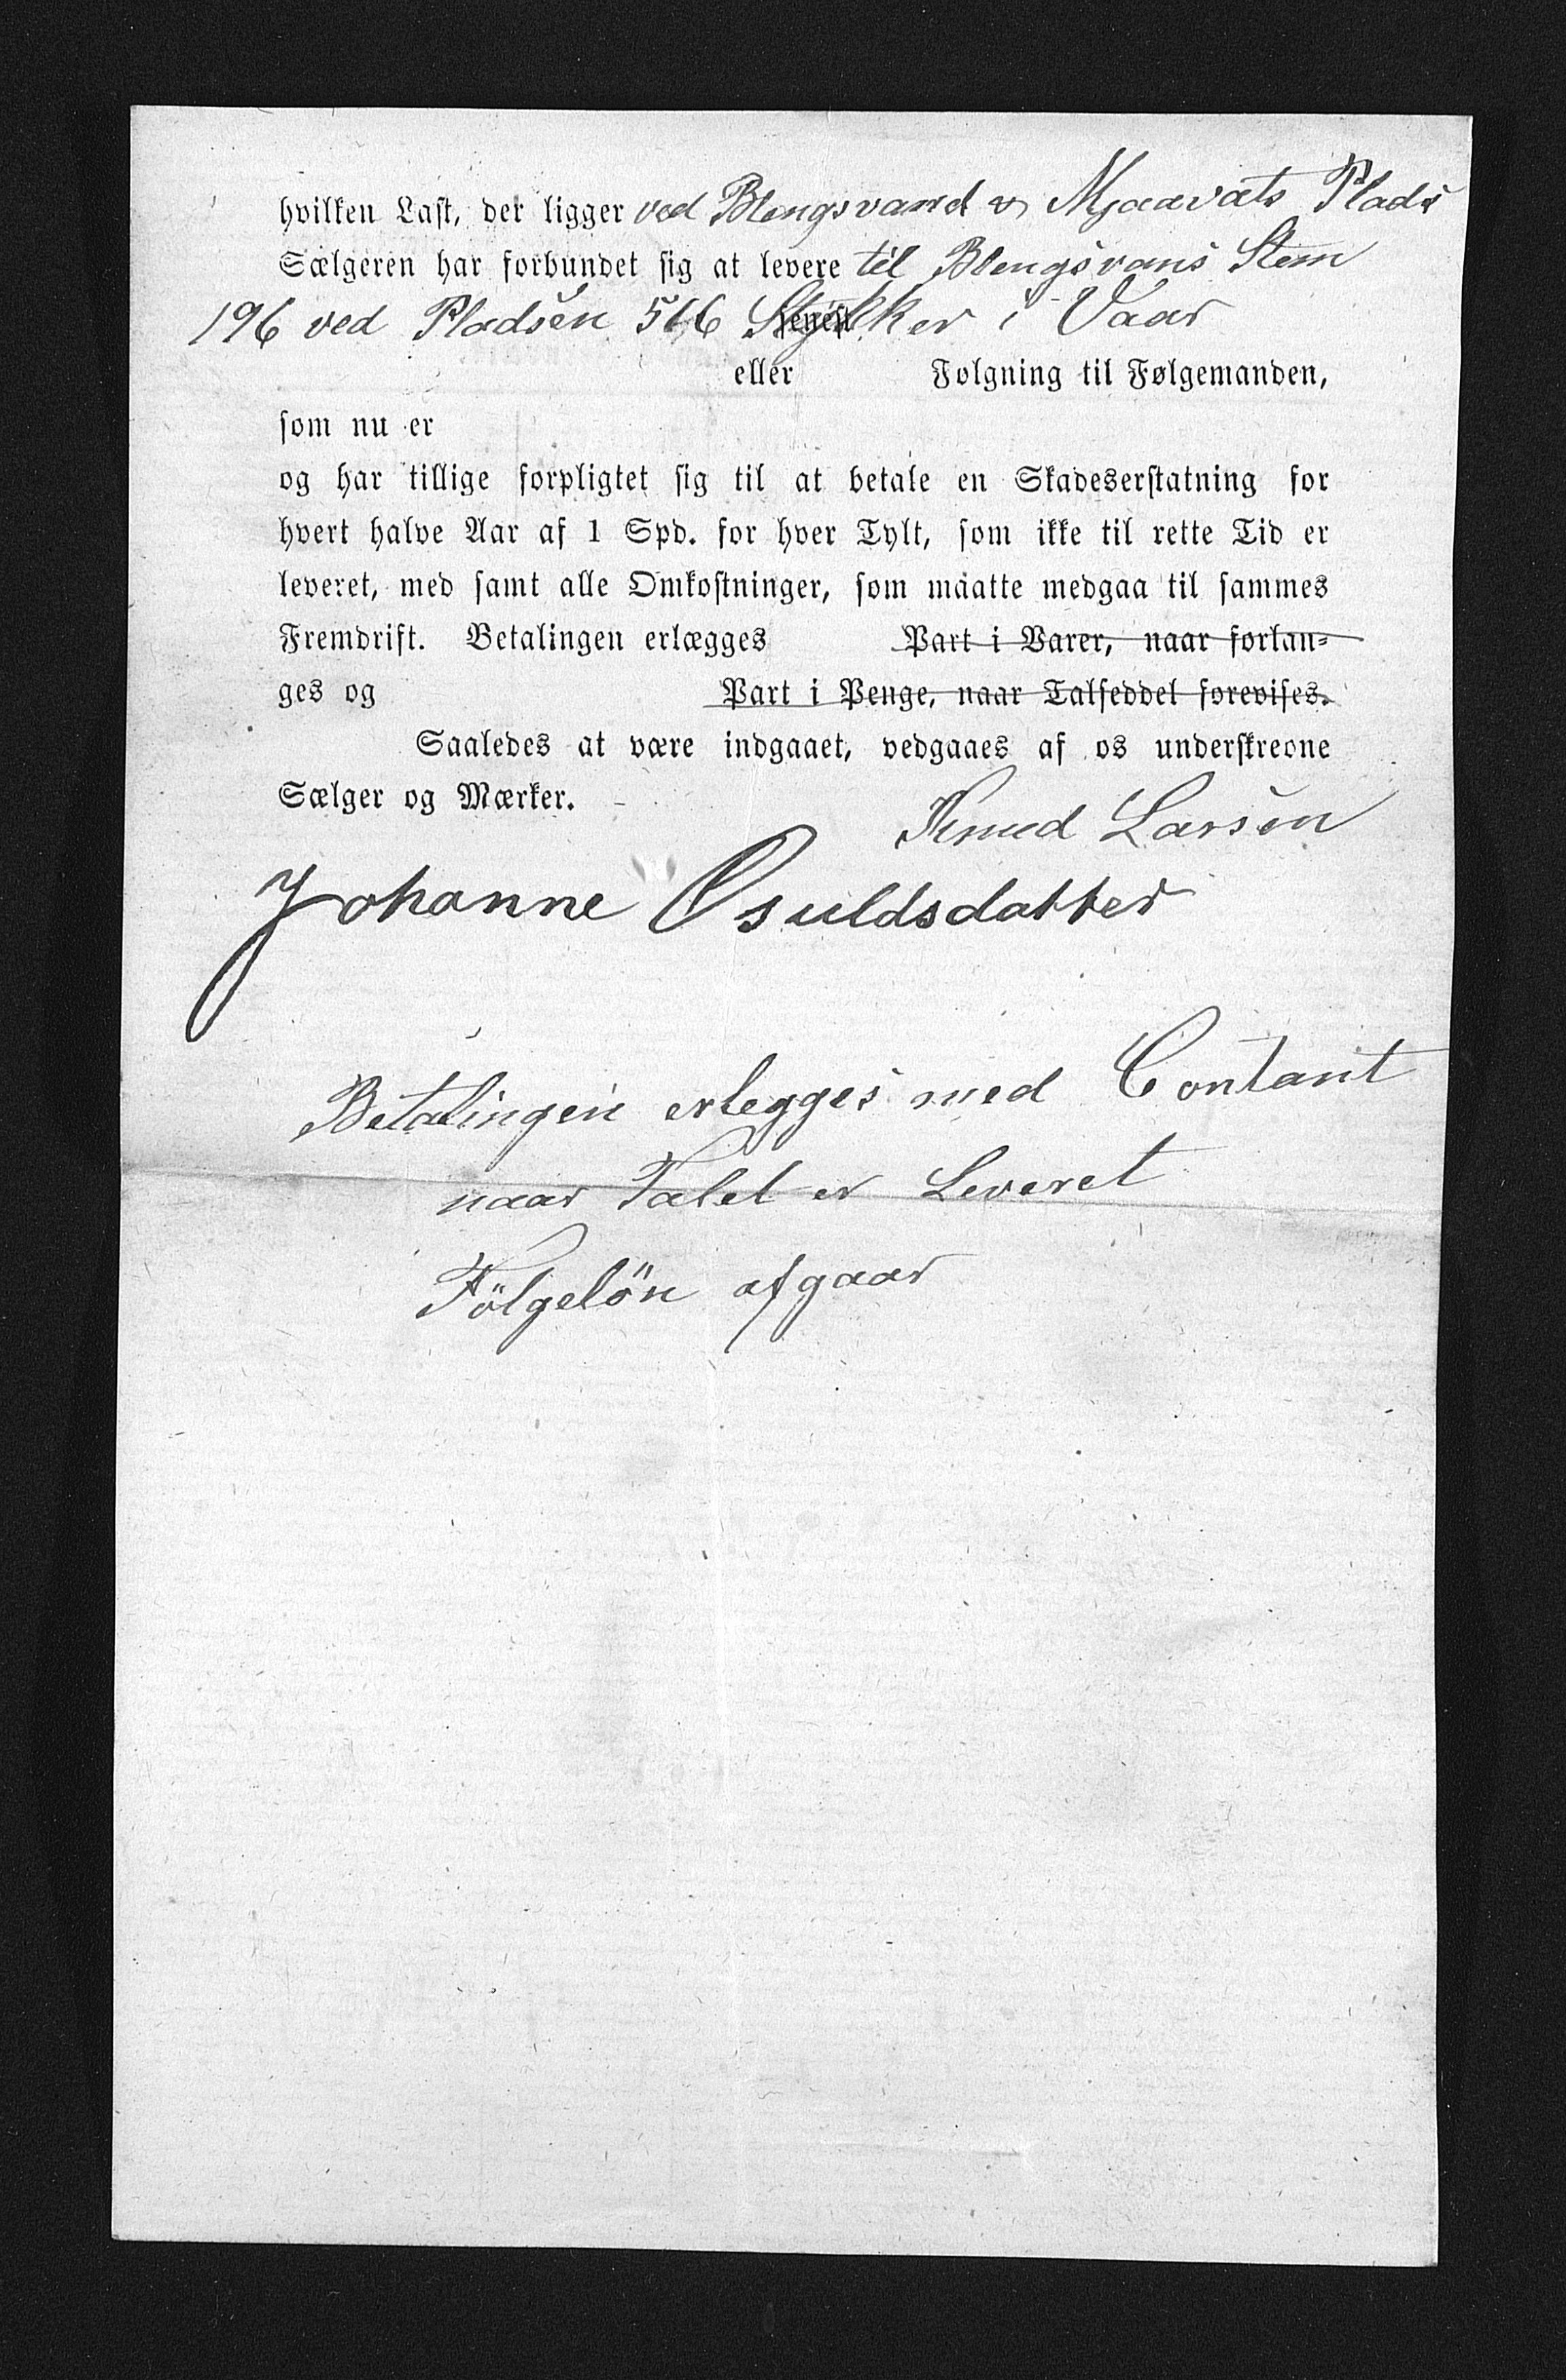 hvilken Last, der ligger ved Blengsvand & Mjaavats Plads
Sælgeren har forbundet sig at levere til Blengsvans Stem
196 ved Pladsen 566 Stykker i Vaar
senest
eller Folgning til Følgemanden,
som nu er
og har tillige forpligtet sig til at betale en Skadeserstatning for
hvert halve Aar af 1 Spd. for hver Tylt, som ikke til rette Tid er
leveret, med samt alle Omkostninger, som maatte medgaa til sammes
Fremdrift. Betalingen erlægges Part i Varer, naar forlan-
ges og Part i Penge, naar Talseddel forevises.
Saaledes at være indgaaet, vedgaaes af os underskrevne
Sælger og Mærker.
Knud Larsen
Johanne Osuldsdatter
Betalingen erlegges med Contant
naar Talet er Leveret
Fölgelön afgaar